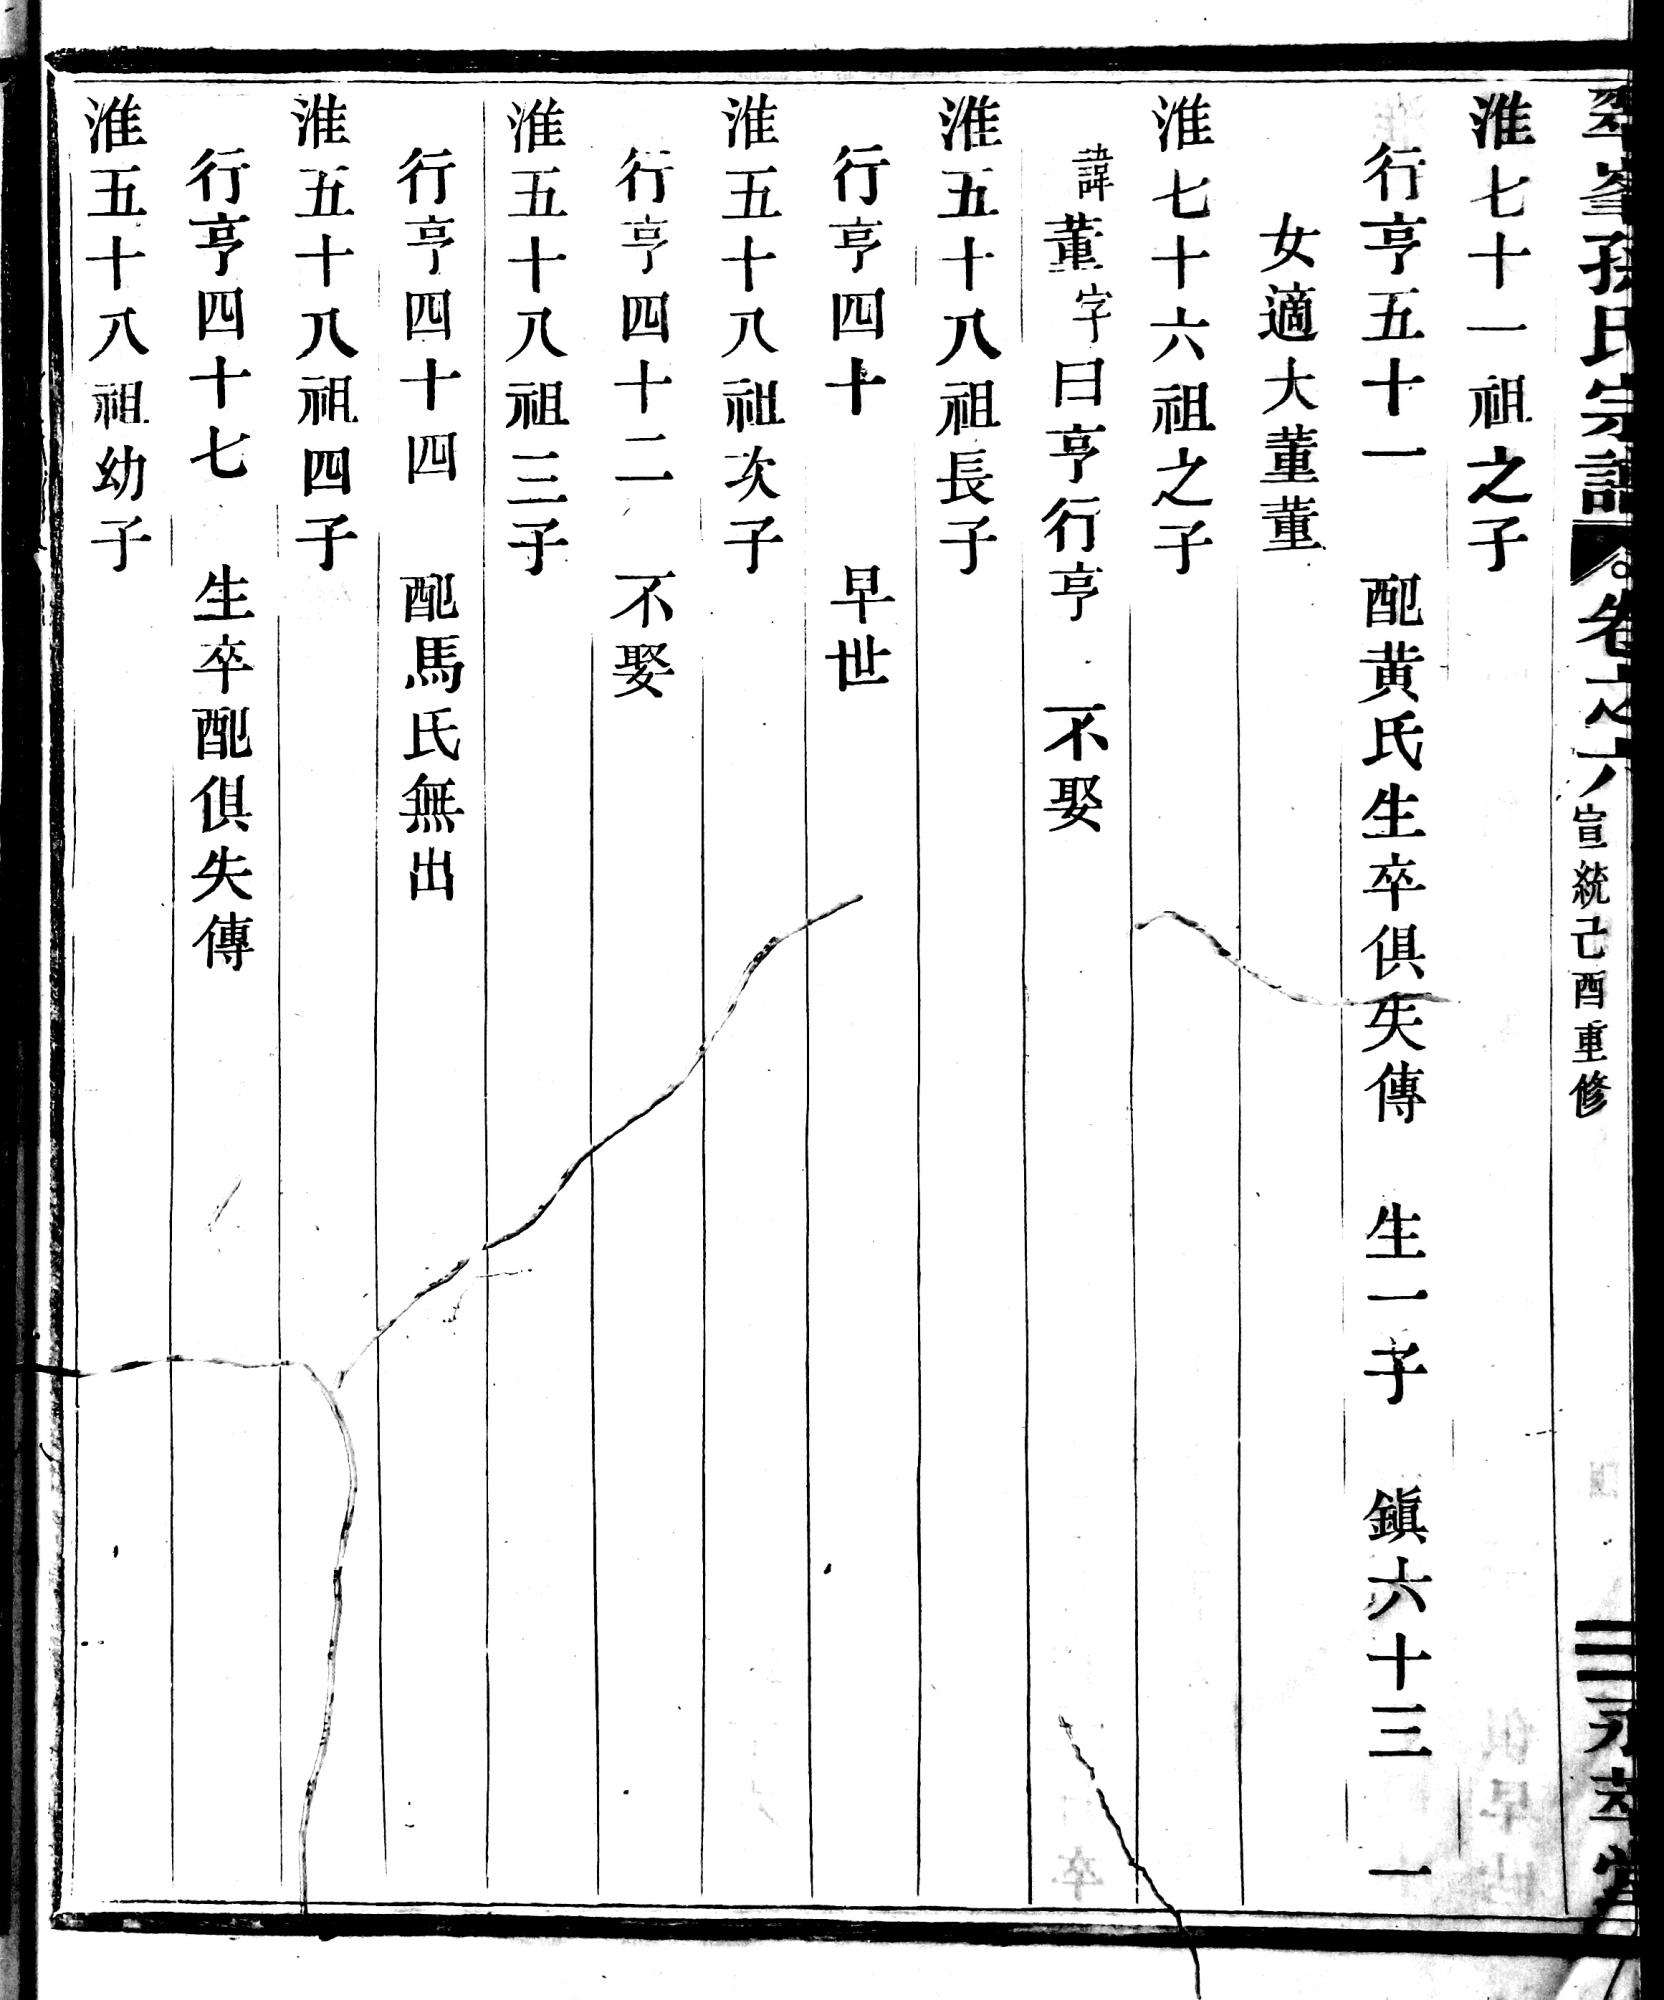 翠峯孫氏宗譜 卷之六 宣統己酉重修 二 永萃堂
淮七十一祖之子
行亨五十一 配黄氏生卒俱失傳 生一子 鎭六十三 一
女適大董董
淮七十六祖之子
諱董字曰亨行亨 不娶
淮五十八祖長子
行亨四十 早世
淮五十八祖次子
行亨四十二 不娶
淮五十八祖三子
行亨四十四 配馬氏無出
淮五十八祖四子
行亨四十七 生卒配俱失傳
淮五十八祖幼子